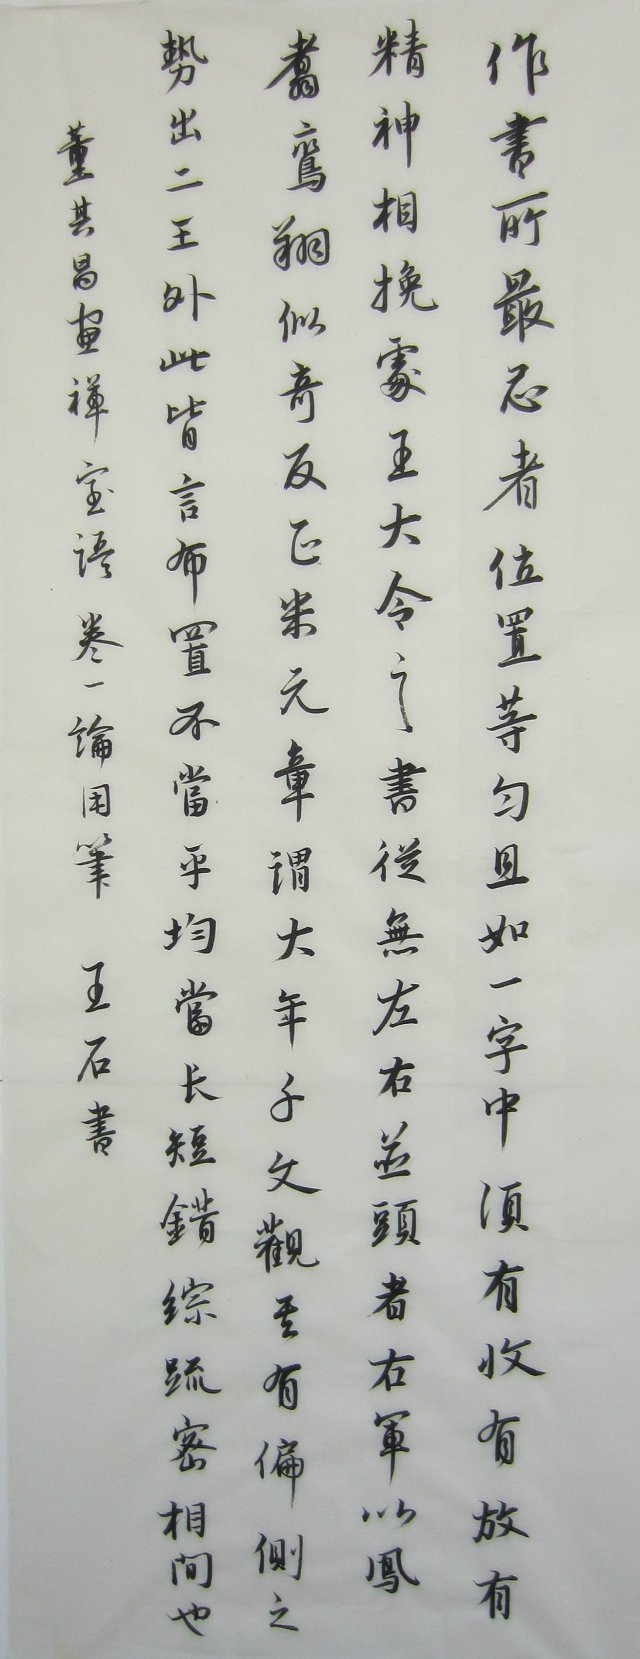 作書所最忌者位置等勻且如一字中須有收有放有
精神相挽處王大令之書從無左右並頭者右軍以鳳
翥鸞翔似奇反正米元章謂大年千文觀其有偏側之
勢出二王外此皆言布置不當平均當长短錯綜疏密相間也
董其昌畫禪室語卷一論用筆 王石書